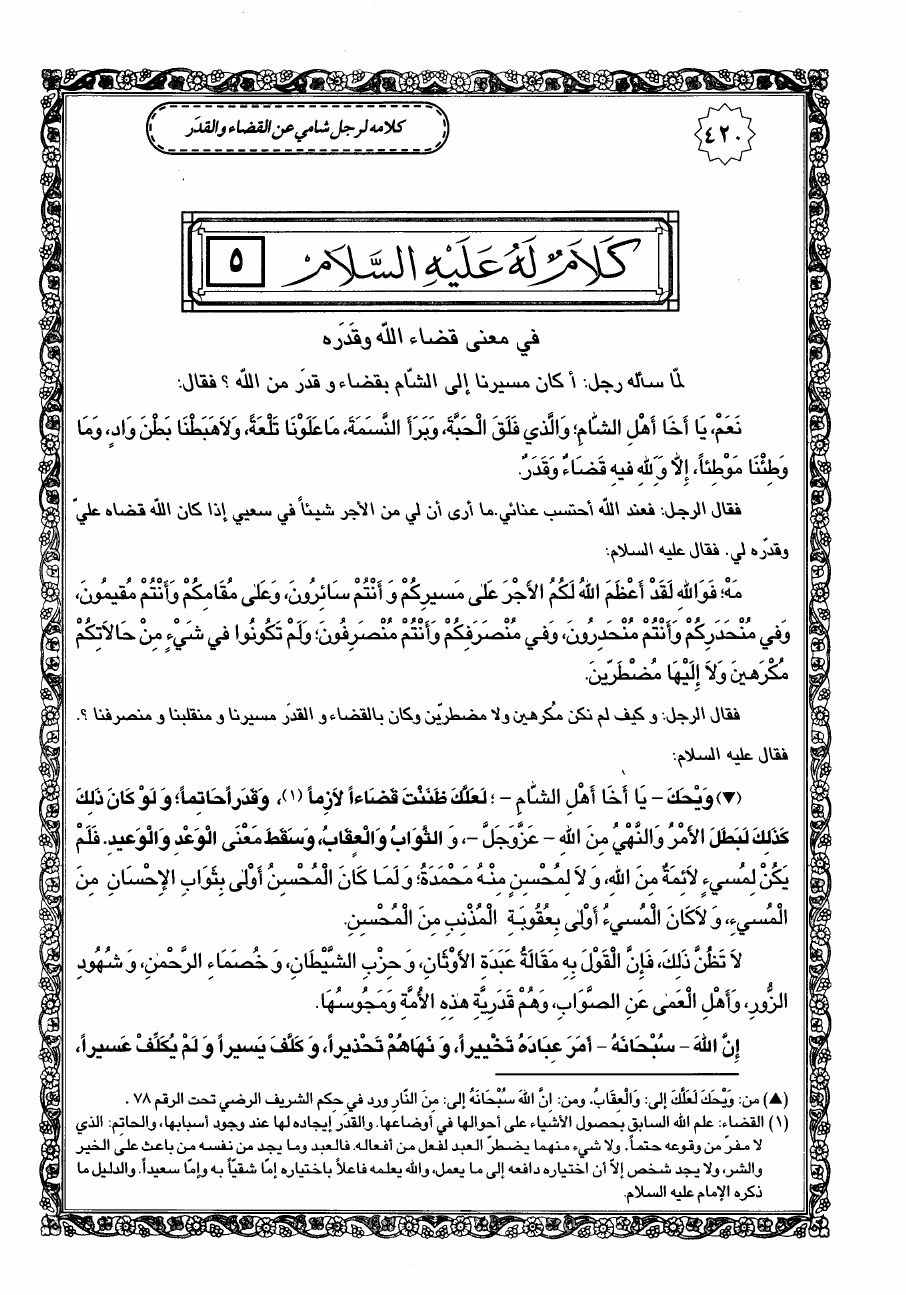 ٤٢٠
كلامه لرجل شامي عن القضاء والقدَر
كَلَامٌ لَهُ عَلَيْهِ السَّلَامُ ٥
في معنى قضاء اللّه وقَدَره
لمّا سأله رجل: أ كان مسيرنا إلى الشّام بقضاء و قدرَ من اللّه ؟ فقال:
نَعَمْ، يَا أَخَا أَهْلِ الشَّامِ؛ وَالَّذي فَلَقَ الْحَبَّةَ، وَبَرَأَ النَّسَمَةَ، مَا عَلَوْنَا تَلْعَةً، وَلاَ هَبَطْنَا بَطْنَ وَادٍ، وَمَا
وَطِئْنَا مَوْطِئاً، إِلاَّ وَلِلّهِ فيهِ قَضَاءٌ وَقَدَرٌ.
فقال الرجل: فعند اللّه أحتسب عنائي.ما أرى أن لي من الأجر شيئاً في سعيي إذا كان اللّه قضاه عليّ
وقدّره لي. فقال عليه السلام:
مَهْ؛ فَوَاللهِ لَقَدْ أَعْظَمَ اللهُ لَكُمُ الأَجْرَ عَلىٰ مَسيرِكُمْ وَ أَنْتُمْ سَائِرُونَ، وَعَلىٰ مُقَامِكُمْ وَأَنْتُمْ مُقيمُونَ،
وَفي مُنْحَدَرِكُمْ وَأَنْتُمْ مُنْحَدِرُونَ، وَفي مُنْصَرَفِكُمْ وَأَنْتُمْ مُنْصَرِفُونَ؛ وَلَمْ تَكُونُوا في شَيْءٍ مِنْ حَالاَتِكُمْ
مُكْرَهينَ وَلاَ إِلَيْهَا مُضْطَرّينَ.
فقال الرجل: و كيف لم نكن مُكرهين ولا مضطريّن وكان بالقضاء و القدَر مسيرنا و منقلبنا و منصرفنا ؟.
فقال عليه السلام:
(▼) وَيْحَكَ – يَا أَخَا أَهْلِ الشَّامِ – ؛ لَعَلَّكَ ظَنَنْتَ قَضَاءاً لاَزِماً (١)، وَقَدَراً حَاتِماً؛ وَ لَوْ كَانَ ذٰلِكَ
كَذٰلِكَ لَبَطَلَ الأَمْرُ وَالنَّهْيُ مِنَ اللهِ – عَزَّوَجَلَّ –، وَ الثَّوَابُ وَالْعِقَابُ، وَسَقَطَ مَعْنَى الْوَعْدِ وَالْوَعيدِ. فَلَمْ
يَكُنْ لِمُسيءٍ لاَئِمَةٌ مِنَ اللهِ، وَ لاَ لِمُحْسِنٍ مِنْهُ مَحْمَدَةٌ؛ وَ لَمَا كَانَ الْمُحْسِنُ أَوْلىٰ بِثَوَابِ الإِحْسَانِ مِنَ
الْمُسيءِ، وَ لاَ كَانَ الْمُسيءُ أَوْلىٰ بِعُقُوبَةِ الْمُذْنِبِ مِنَ الْمُحْسِنِ.
لاَ تَظُنَّ ذٰلِكَ، فَإِنَّ الْقَوْلَ بِهِ مَقَالَةُ عَبَدَةِ الأَوْثَانِ، وَ حِزْبِ الشَّيْطَانِ، وَ خُصَمَاءِ الرَّحْمٰنِ، وَ شُهُودِ
الزُّورِ، وَأَهْلِ الْعَمىٰ عَنِ الصَّوَابِ، وَهُمْ قَدَرِيَّةُ هٰذِهِ الأُمَّةِ وَمَجُوسُهَا.
إِنَّ اللهَ – سُبْحَانَهُ – أَمَرَ عِبَادَهُ تَخْييراً، وَ نَهَاهُمْ تَحْذيراً، وَ كَلَّفَ يَسيراً وَ لَمْ يُكَلِّفْ عَسيراً،
(▲) من: وَيْحَكَ لَعَلَّكَ إلى: وَالْعِقَابُ. ومن: إِنَّ اللهَ سُبْحَانَهُ إلى: مِنَ النَّارِ ورد في حِكم الشريف الرضي تحت الرقم ٧٨ .
(١) القضاء: علم الله السابق بحصول الأشياء على أحوالها في أوضاعها. والقدَر إيجاده لها عند وجود أسبابها، والحاتم: الذي
لا مفرّ من وقوعه حتماً. ولا شيء منهما يضطرّ العبد لفعل من أفعاله. فالعبد وما يجد من نفسه من باعث على الخير
والشر، ولا يجد شخص إلاّ أن اختياره دافعه إلى ما يعمل، والله يعلمه فاعلاً باختياره إمّا شقيّاً به وإمّا سعيداً. والدليل ما
ذكره الإمام عليه السلام.